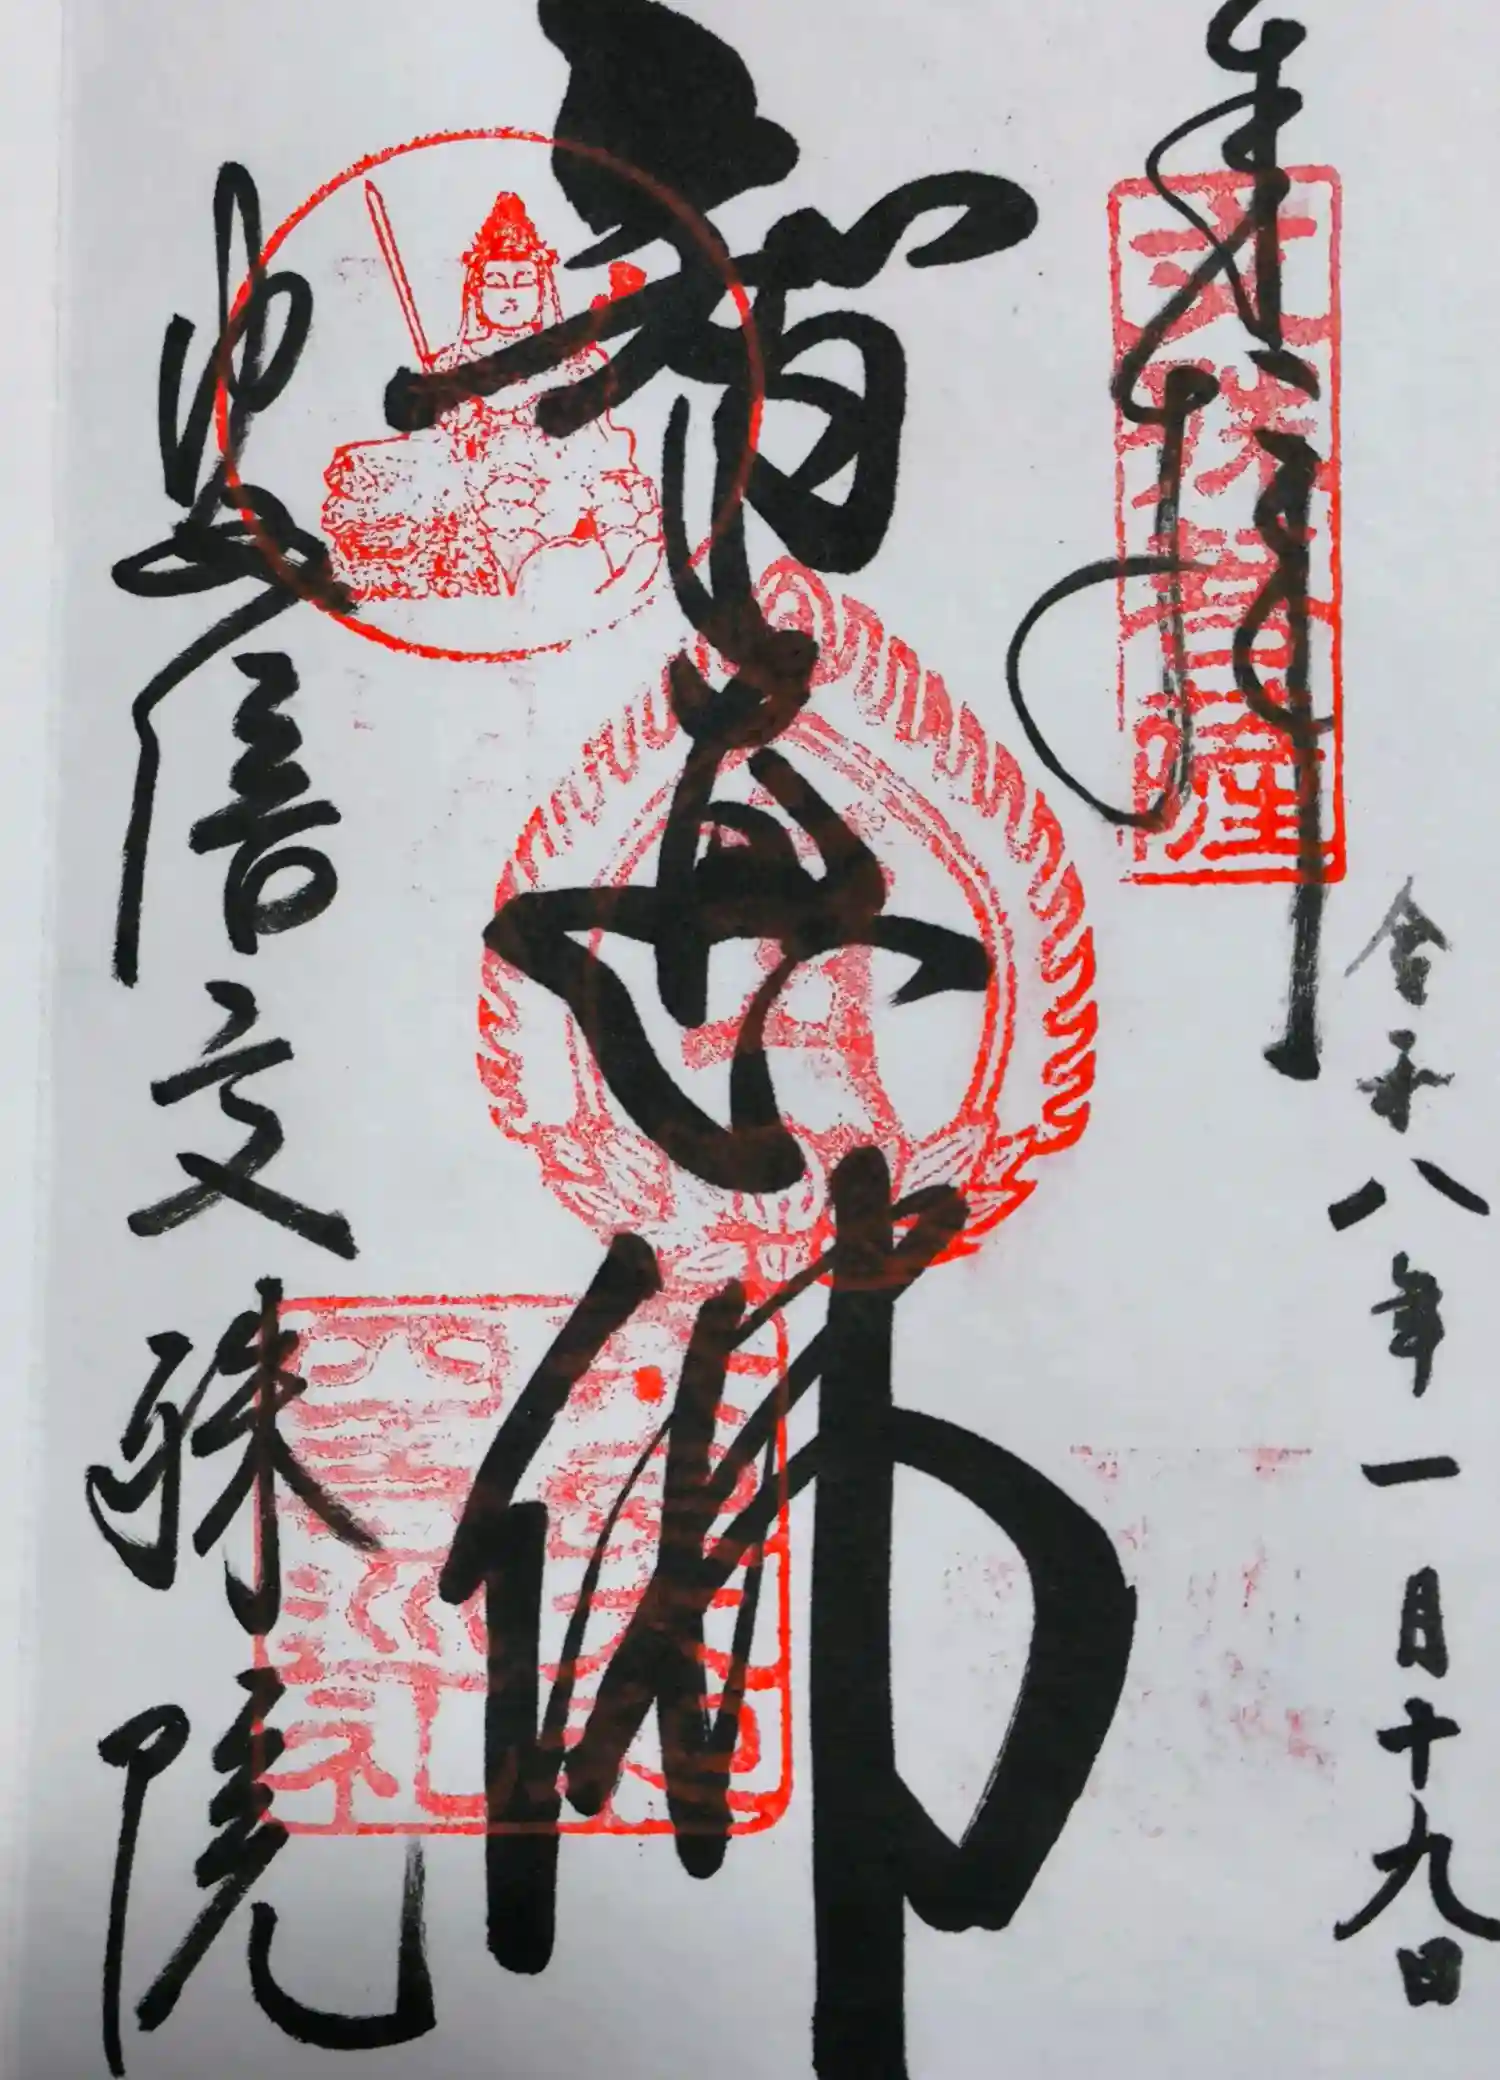 奉拝
文殊菩薩
令和八年一月十九日
智恵佛
安倍文殊院